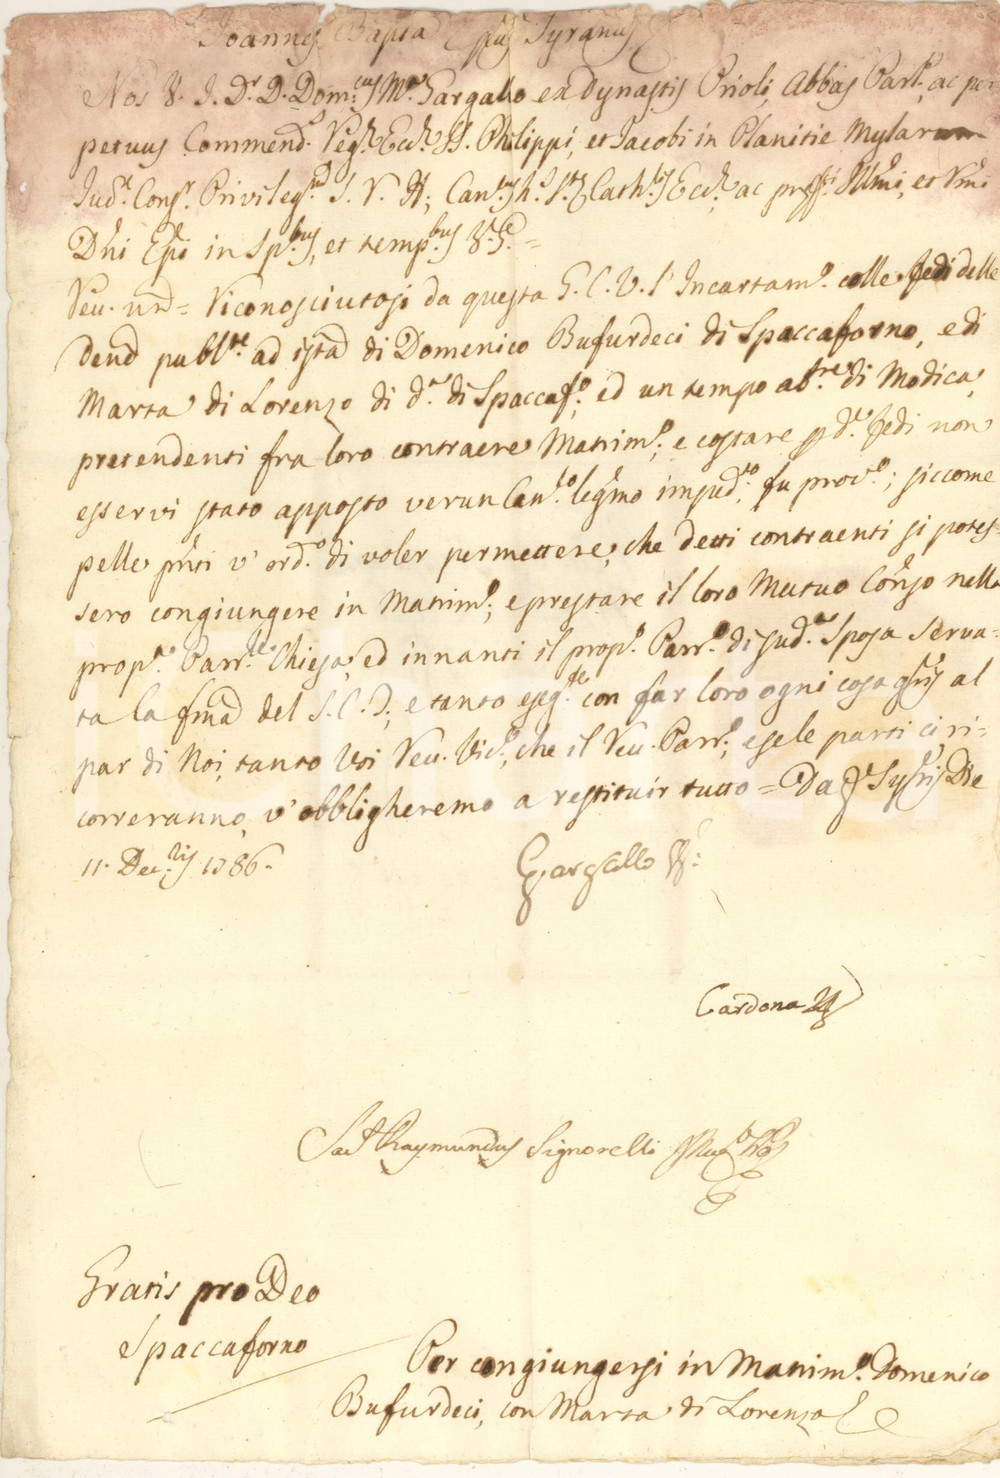 Joannes Bapta Epus Syranus
Nos V. J. Dr. D. Dom:cus Ma Gargallo ex Dynastis Prioli, Abbas Parl:, ac per
petuus Commend:s Reg: Eccl: SS. Philippi, et Jacobi in Planitie Mylarum
Jud: Cons: Privileg: S. V. H; Can:cus h: S: Cath:lis Eccl:, ac præf:ti Illmi, et Rmi
Dni Epi in Sp:bus, et temp:bus V. G. =
Reu. und = Riconosciutosi da questa G. C. V. l'Incartam:o colle Fedi delle
Dend publ:te ad istad di Domenico Bufurdeci di Spaccaforno, e di
Marta di Lorenzo di d:a di Spaccaf:o, ed un tempo ab:tre di Modica,
pretendenti fra loro contraere Matrim:o; e costare p d:e Fedi non
esservi stato apposto verun Can:co legmo imped:to, fu prov:o; siccome
pelle pnti v'ord:o di voler permettere, che detti contraenti si potes-
sero congiungere in Matrim:o; e prestare il loro Mutuo Conso nella
prop:a Parr:le Chiesa, ed innanti il prop:o Parr:o di sud:a Sposa serva-
ta la fmad del S. C. T.; e tanto eseg:te con far loro ogni cosa gtis al
par di Noi, tanto Voi Reu. Vic:, che il Reu. Parr:o; e se le parti ci ri-
correranno, v'obbligheremo a restituir tutto = Da Syris Die
11. Dec:bris 1786.
Gargallo V. G:
Cardona
Sac Raymundus Signorelli
Gratis pro Deo
Spaccaforno
Per congiungersi in Matrim:o Domenico
Bufurdeci, con Marta di Lorenzo